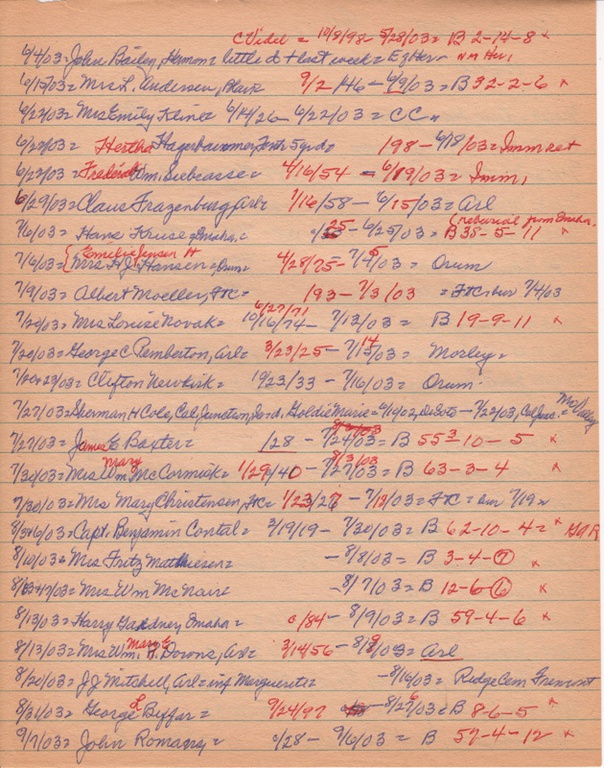 C Videl = 10/8/98 - 5/28/03 = B 2-14-8 x
6/4/03 = John Bailey, Hermon little d + last week =
6/15/03 = Mrs L. Andersen, Blair 9/2/46 - 6/9/03 = B 32-2-6 x
6/22/03 = Mrs Emily Kline 6/14/26 - 6/22/03 = CC
6/22/03 = Hertha Hagerbaummer, Font. 5 yrd = 198 - 6/18/03 = Imm
6/22/03 = Frederick Wm. Siebeasse = 4/16/54 - 6/19/03 = Imm,
6/29/03 = Claus Frazenburg Arl = 7/16/58 - 6/15/03 = Arl
(reburial from Omaha.
7/6/03 = Hans Kruse = Omaha, = c/25 - 6/25/03 = B 38-5-11 x
Emelie Jensen H
7/6/03 = {Mrs H.J. Hansen = Orum = 4/28/75 - 7/5/03 = Orum
7/9/03 = Albert Moeller, FtC = 193 - 7/3/03 = FtC = bur 7/4/03
6/27/71
7/20/03 = Mrs Louise Novak = 10/16/74 - 7/13/03 = B 19-9-11 x
7/20/03 = George C Pemberton, Arl = 3/23/25 - 7/14/03 = Morley =
7/20+23/03 = Clifton Newkirk = 10/23/33 - 7/16/03 = Orum
7/27/03 = Sherman H Cole, Cal Junction, So = d. Goldie Marie = 6/19/02, DeSoto - 7/22/03, Cal Junc. =
7/27/03 = James E Baxter = 1/28 - 7/24/03 = B 55 3-10-5 x
Mary 8/3/03
7/30/03 = Mrs Wm McCormick = 1/29/40 - 7/27/03 = B 63-3-4 x
7/30/03 = Mrs Mary Christensen, FtC = 1/23/27 - 7/18/03 = FtC = bur 7/19 x
8/3+6/03 = Capt. Benjamin Contal = 3/19/19 - 7/30/03 = B 62-10-4 = x GAR
8/10/03 = Mrs Fritz Matthiesen = - 8/8/03 = B 3-4-7 x
8/13+17/03 = Mrs Wm McNarr - 8/7/03 = B 12-6-6 x
8/13/03 = Harry Gardner, Omaha = c/84 - 8/9/03 = B 59-4-6 x
Mary E
8/13/03 = Mrs Wm. H. Downs, Arl = 3/14/56 - 8/9/03 = Arl
8/20/03 = J J Mitchell, Arl = inf Marguerite = - 8/16/03 = Ridge Cem Fremont
8/31/03 = George L Byffar = 9/24/97 - 8/26/03 = B 8-6-5 x
9/7/03 = John Romany = c/28 - 9/6/03 = B 57-4-12 x